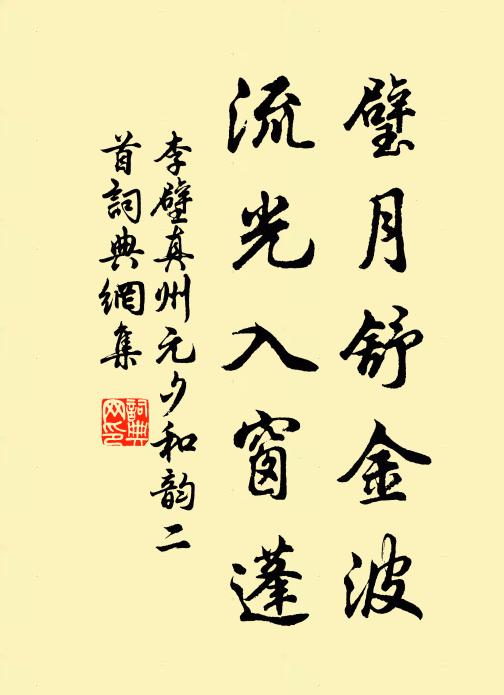 璧月舒金波
流光入窗蓬
李壁真州元夕和韵二
首詞典網集
詞典
网印